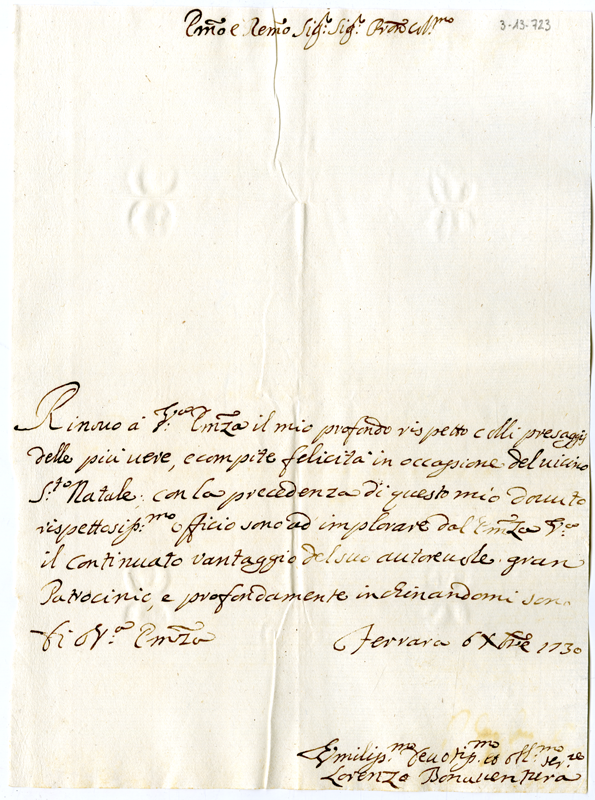 Emo e Remo Sigr. Sigr. Prone Coll.mo
3-13-723
Rinovo à V.ra Emza il mio profondo rispetto colli presaggi
delle più vere, e compite felicità in occasione del vicino
S.to Natale; con la precedenza di questo mio dovuto
rispettosiss.mo officio sono ad implorare dal Emza V.ra
il continuato vantaggio del suo autorevole gran
Patrocinio, e profondamente inchinandomi sono
Di V.ra Emza Ferrara 6 Xbre 1730
Umiliss.mo Devotiss.mo et Obl.mo Ser.re
Lorenzo Bonaventura